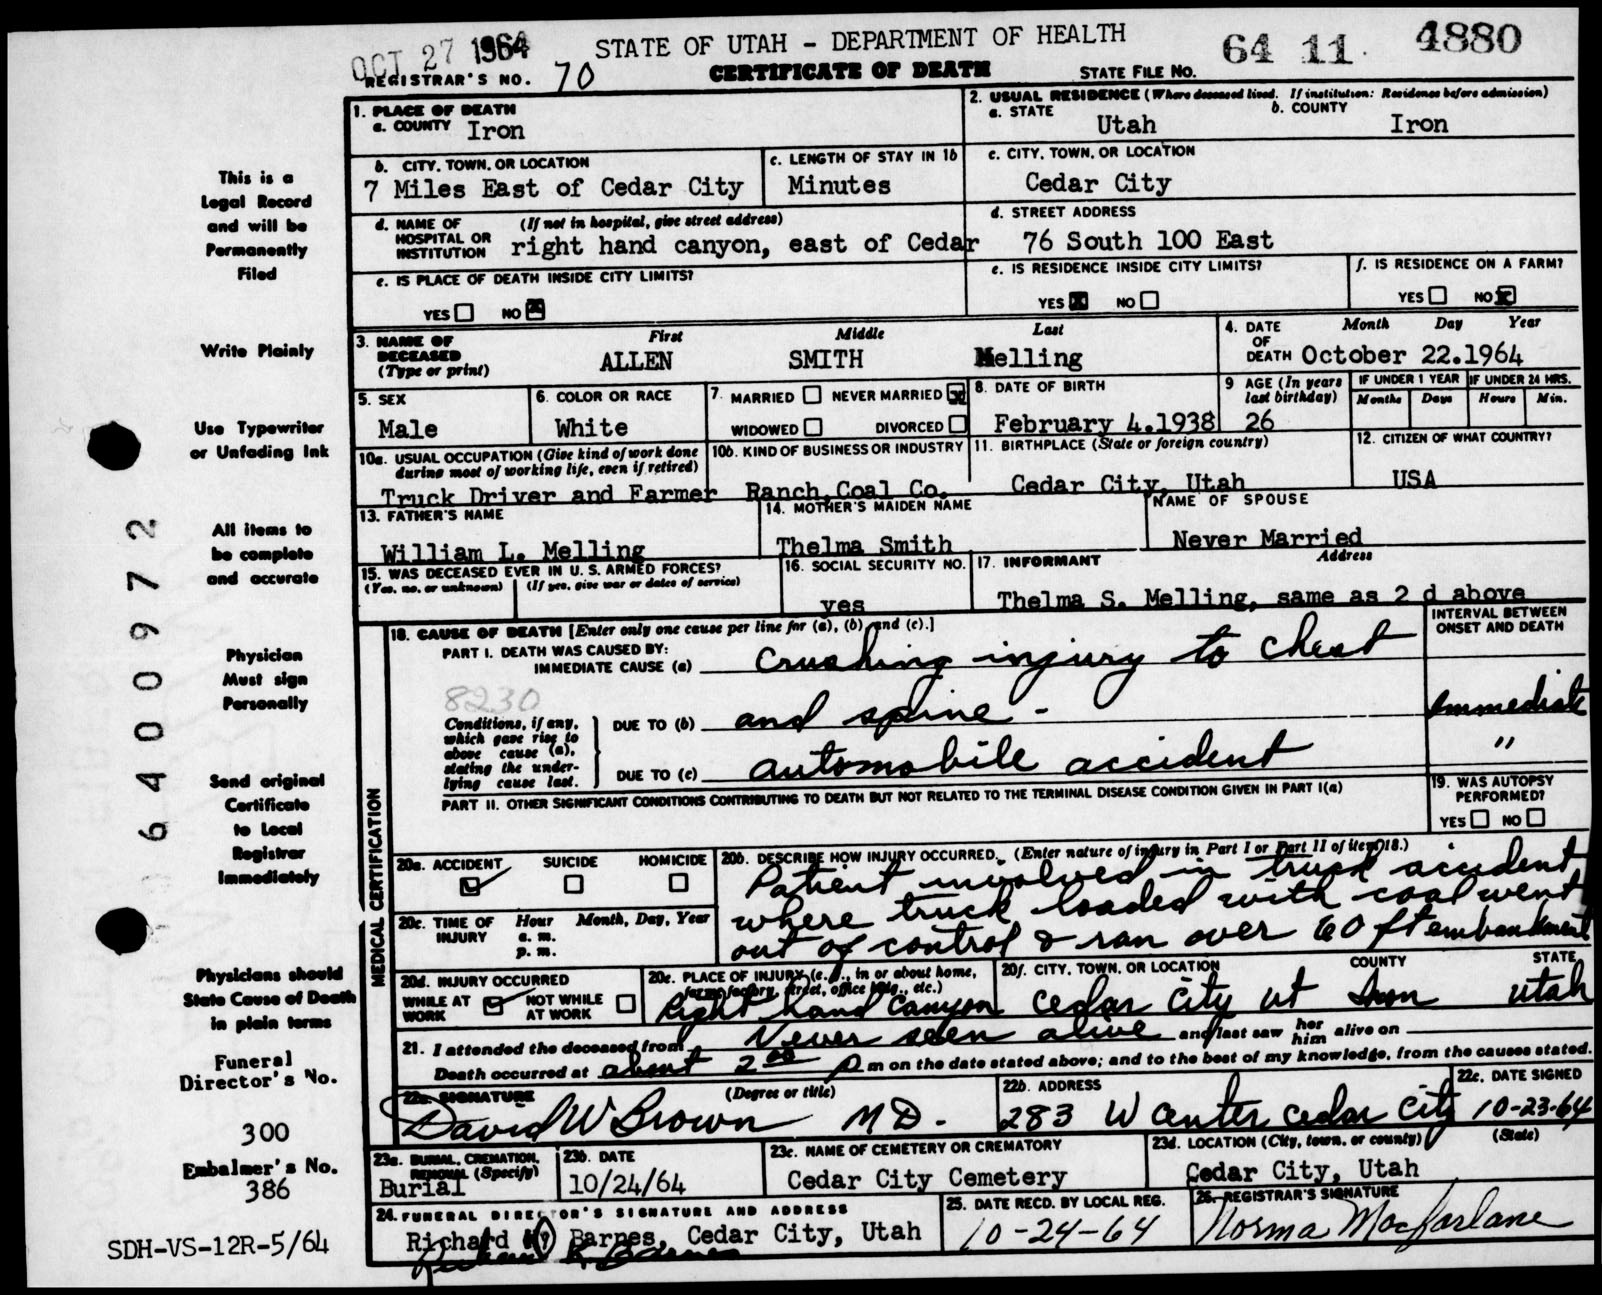 OCT 27 1964
STATE OF UTAH - DEPARTMENT OF HEALTH
64 11 4880
REGISTRAR'S NO. 70
CERTIFICATE OF DEATH
STATE FILE NO.
1. PLACE OF DEATH
a. COUNTY Iron
2. USUAL RESIDENCE (Where deceased lived. If institution: Residence before admission)
a. STATE Utah
b. COUNTY Iron
b. CITY, TOWN, OR LOCATION
7 Miles East of Cedar City
c. LENGTH OF STAY IN 1b
Minutes
c. CITY, TOWN, OR LOCATION
Cedar City
d. NAME OF HOSPITAL OR INSTITUTION (If not in hospital, give street address)
right hand canyon, east of Cedar
d. STREET ADDRESS
76 South 100 East
e. IS PLACE OF DEATH INSIDE CITY LIMITS?
YES NO
e. IS RESIDENCE INSIDE CITY LIMITS?
YES NO
f. IS RESIDENCE ON A FARM?
YES NO
3. NAME OF DECEASED (Type or print)
First Middle Last
ALLEN SMITH Melling
4. DATE OF DEATH
Month Day Year
October 22.1964
5. SEX
Male
6. COLOR OR RACE
White
7. MARRIED NEVER MARRIED
WIDOWED DIVORCED
8. DATE OF BIRTH
February 4.1938
9 AGE (In years last birthday)
26
IF UNDER 1 YEAR
Months Days
IF UNDER 24 HRS.
Hours Min.
10a. USUAL OCCUPATION (Give kind of work done during most of working life, even if retired)
Truck Driver and Farmer
10b. KIND OF BUSINESS OR INDUSTRY
Ranch, Coal Co.
11. BIRTHPLACE (State or foreign country)
Cedar City, Utah
12. CITIZEN OF WHAT COUNTRY?
USA
13. FATHER'S NAME
William L. Melling
14. MOTHER'S MAIDEN NAME
Thelma Smith
NAME OF SPOUSE
Never Married
15. WAS DECEASED EVER IN U. S. ARMED FORCES?
(Yes, no, or unknown) (If yes, give war or dates of service)
16. SOCIAL SECURITY NO.
yes
17. INFORMANT Address
Thelma S. Melling, same as 2 d above
MEDICAL CERTIFICATION
18. CAUSE OF DEATH [Enter only one cause per line for (a), (b) and (c).]
INTERVAL BETWEEN ONSET AND DEATH
PART I. DEATH WAS CAUSED BY:
IMMEDIATE CAUSE (a) crushing injury to chest
8230
Conditions, if any, which gave rise to above cause (a), stating the underlying cause last.
DUE TO (b) and spine - Immediate
DUE TO (c) automobile accident "
PART II. OTHER SIGNIFICANT CONDITIONS CONTRIBUTING TO DEATH BUT NOT RELATED TO THE TERMINAL DISEASE CONDITION GIVEN IN PART I(a)
19. WAS AUTOPSY PERFORMED?
YES NO
20a. ACCIDENT SUICIDE HOMICIDE
20b. DESCRIBE HOW INJURY OCCURRED. (Enter nature of injury in Part I or Part II of item 18.)
Patient involved in truck accident
where truck loaded with coal went
out of control & ran over 60 ft embankment
20c. TIME OF INJURY Hour Month, Day, Year
a. m.
p. m.
20d. INJURY OCCURRED
WHILE AT WORK NOT WHILE AT WORK
20e. PLACE OF INJURY (e. g., in or about home, farm, factory, street, office bldg., etc.)
Right hand Canyon
20f. CITY, TOWN, OR LOCATION COUNTY STATE
Cedar City Ut Iron Utah
21. I attended the deceased from Never seen alive and last saw her him alive on
Death occurred at about 2 00 p m on the date stated above; and to the best of my knowledge, from the causes stated.
22a. SIGNATURE (Degree or title)
David W Brown MD.
22b. ADDRESS
283 W Center Cedar City
22c. DATE SIGNED
10-23-64
23a. BURIAL, CREMATION, REMOVAL (Specify)
Burial
23b. DATE
10/24/64
23c. NAME OF CEMETERY OR CREMATORY
Cedar City Cemetery
23d. LOCATION (City, town, or county) (State)
Cedar City, Utah
24. FUNERAL DIRECTOR'S SIGNATURE AND ADDRESS
Richard Barnes, Cedar City, Utah
25. DATE RECD. BY LOCAL REG.
10-24-64
26. REGISTRAR'S SIGNATURE
Norma Macfarlane
This is a
Legal Record
and will be
Permanently
Filed
Write Plainly
Use Typewriter
or Unfading Ink
All items to
be complete
and accurate
Physician
Must sign
Personally
Send original
Certificate
to Local
Registrar
Immediately
Physicians should
State Cause of Death
in plain terms
Funeral
Director's No.
300
Embalmer's No.
386
SDH-VS-12R-5/64
6400972